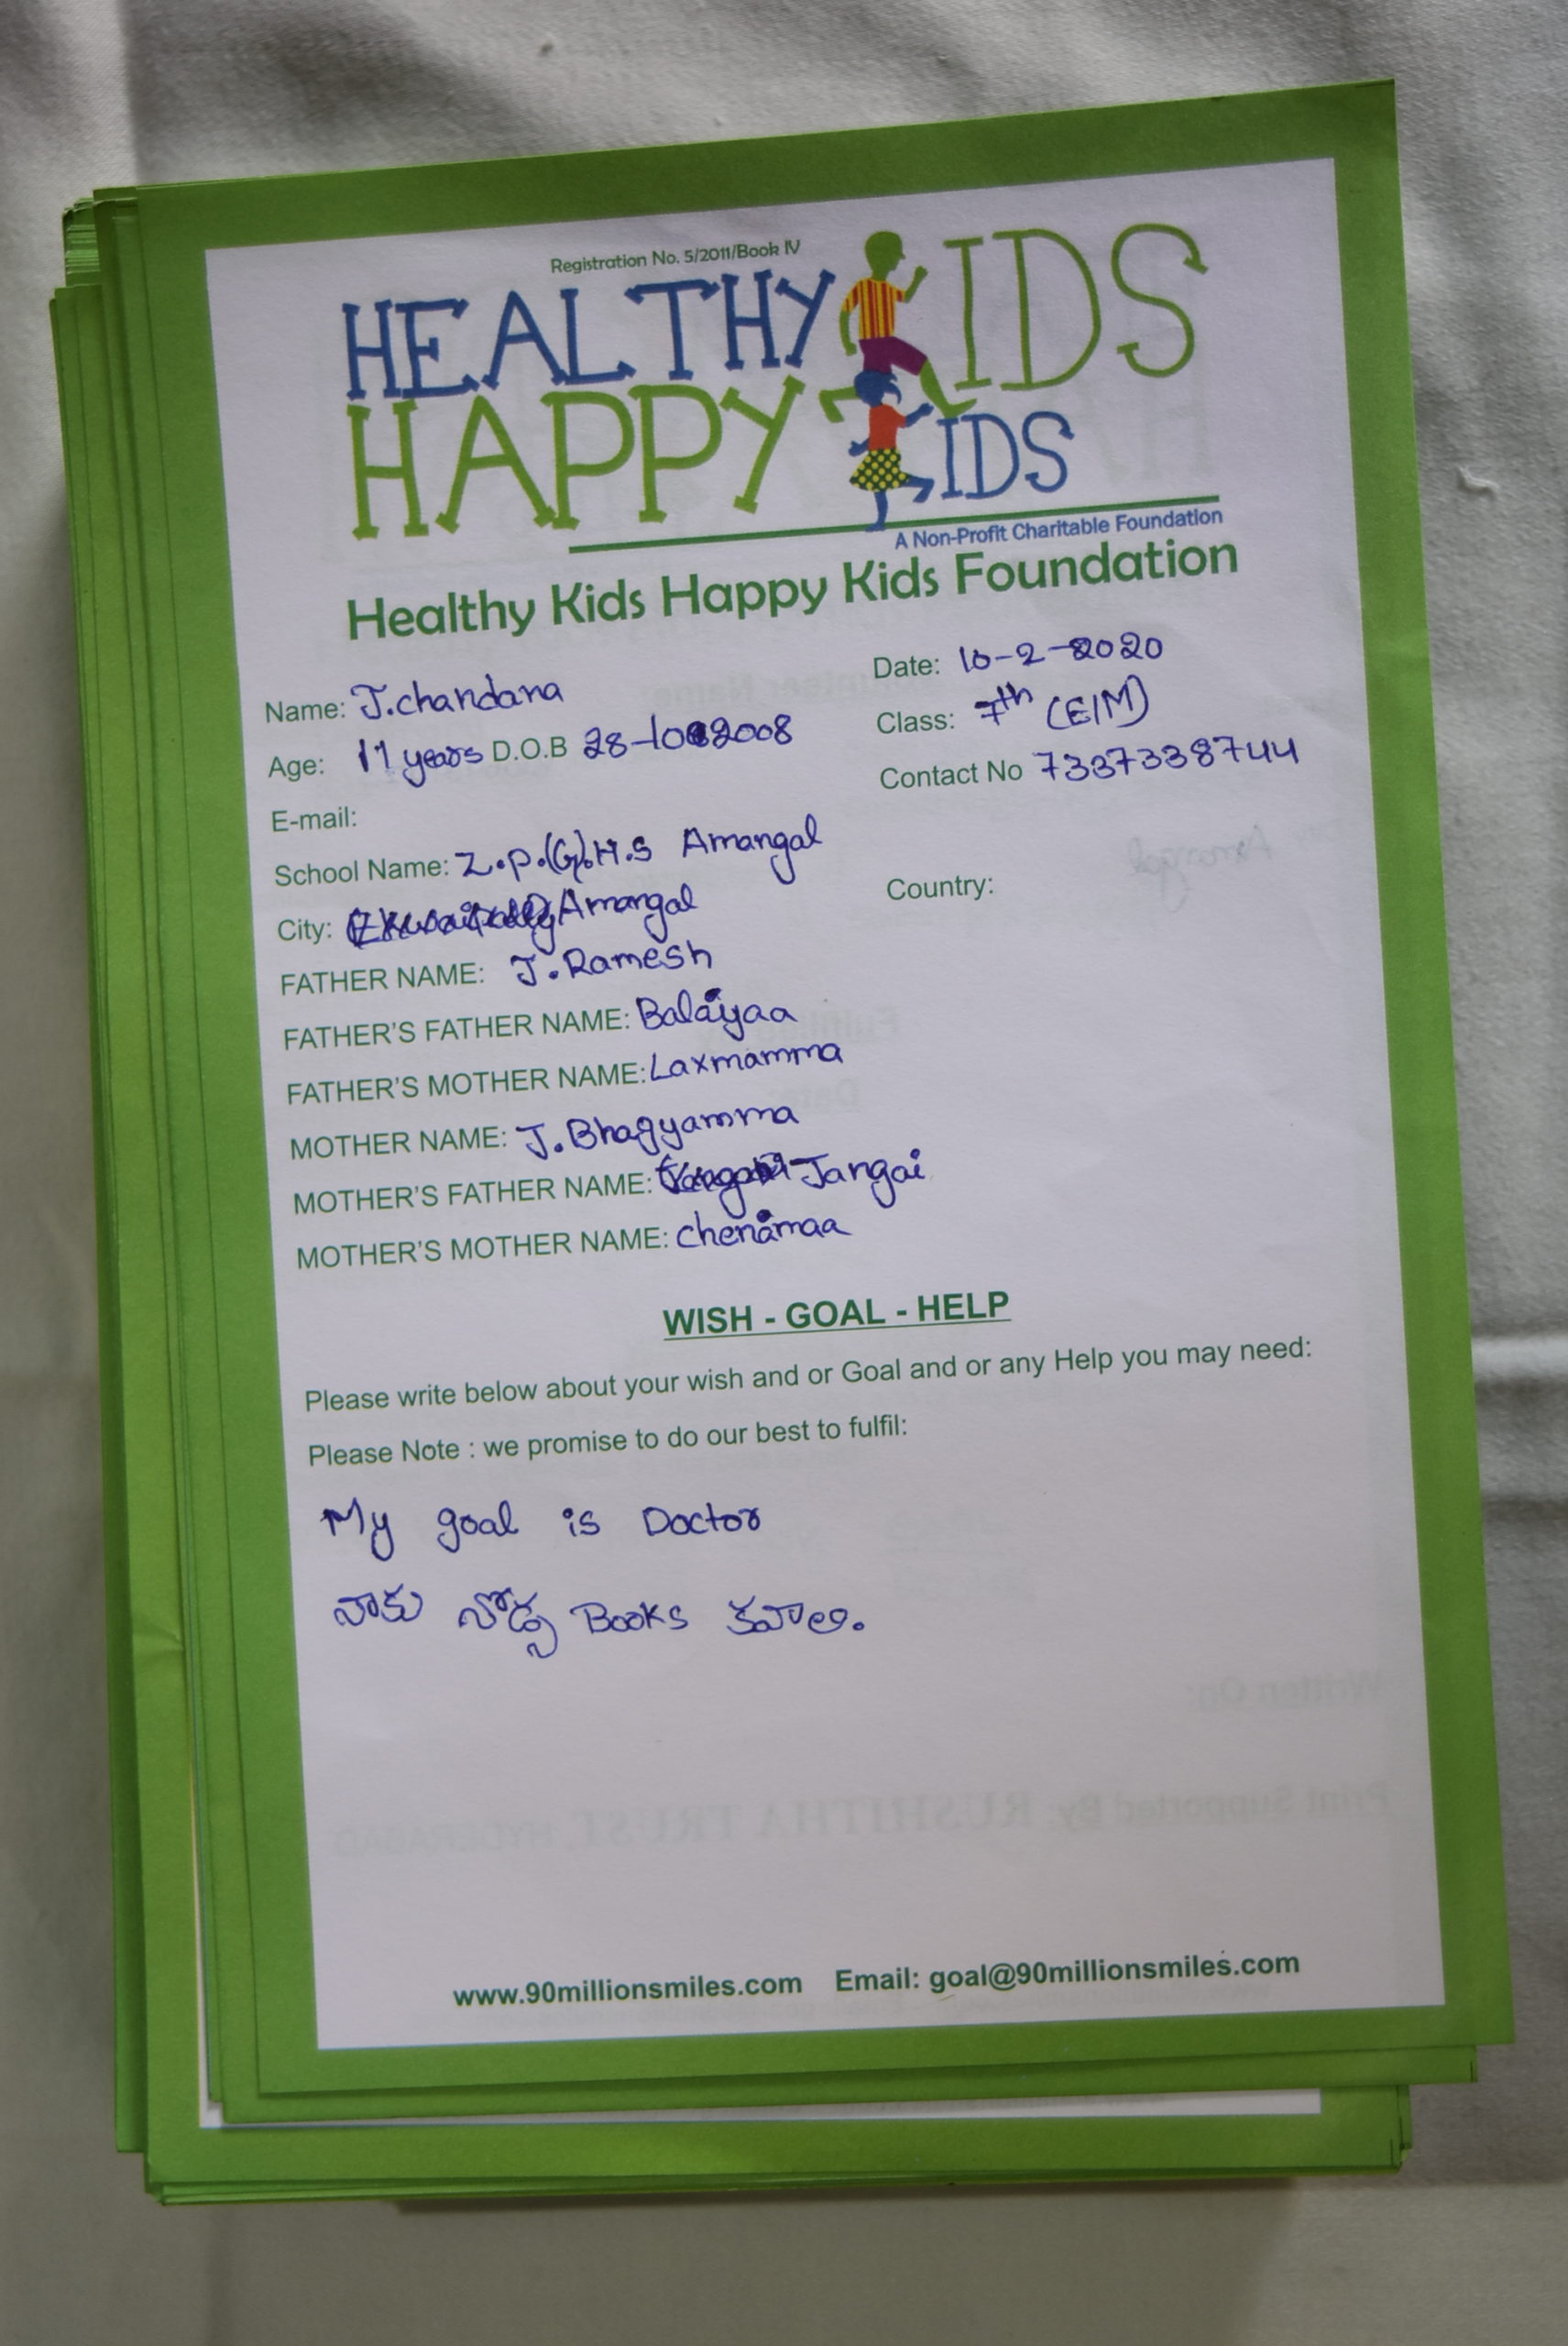 Registration No. 5/2011/Book IV
HEALTHY KIDS
HAPPY KIDS
A Non-Profit Charitable Foundation
Healthy Kids Happy Kids Foundation
Name: J.chandana Date: 10-2-2020
Age: 11 years D.O.B 28-10-2008 Class: 7th (E/M)
E-mail: Contact No 7337338744
School Name: Z.P.(G).H.S Amangal
City: Amangal Country:
FATHER NAME: J.Ramesh
FATHER'S FATHER NAME: Balaiyaa
FATHER'S MOTHER NAME: Laxmamma
MOTHER NAME: J.Bhagyamma
MOTHER'S FATHER NAME: Jangai
MOTHER'S MOTHER NAME: chenamaa
WISH - GOAL - HELP
Please write below about your wish and or Goal and or any Help you may need:
Please Note : we promise to do our best to fulfil:
My goal is Doctor
నాకు నోడ్స Books కవాలి.
www.90millionsmiles.com Email: goal@90millionsmiles.com